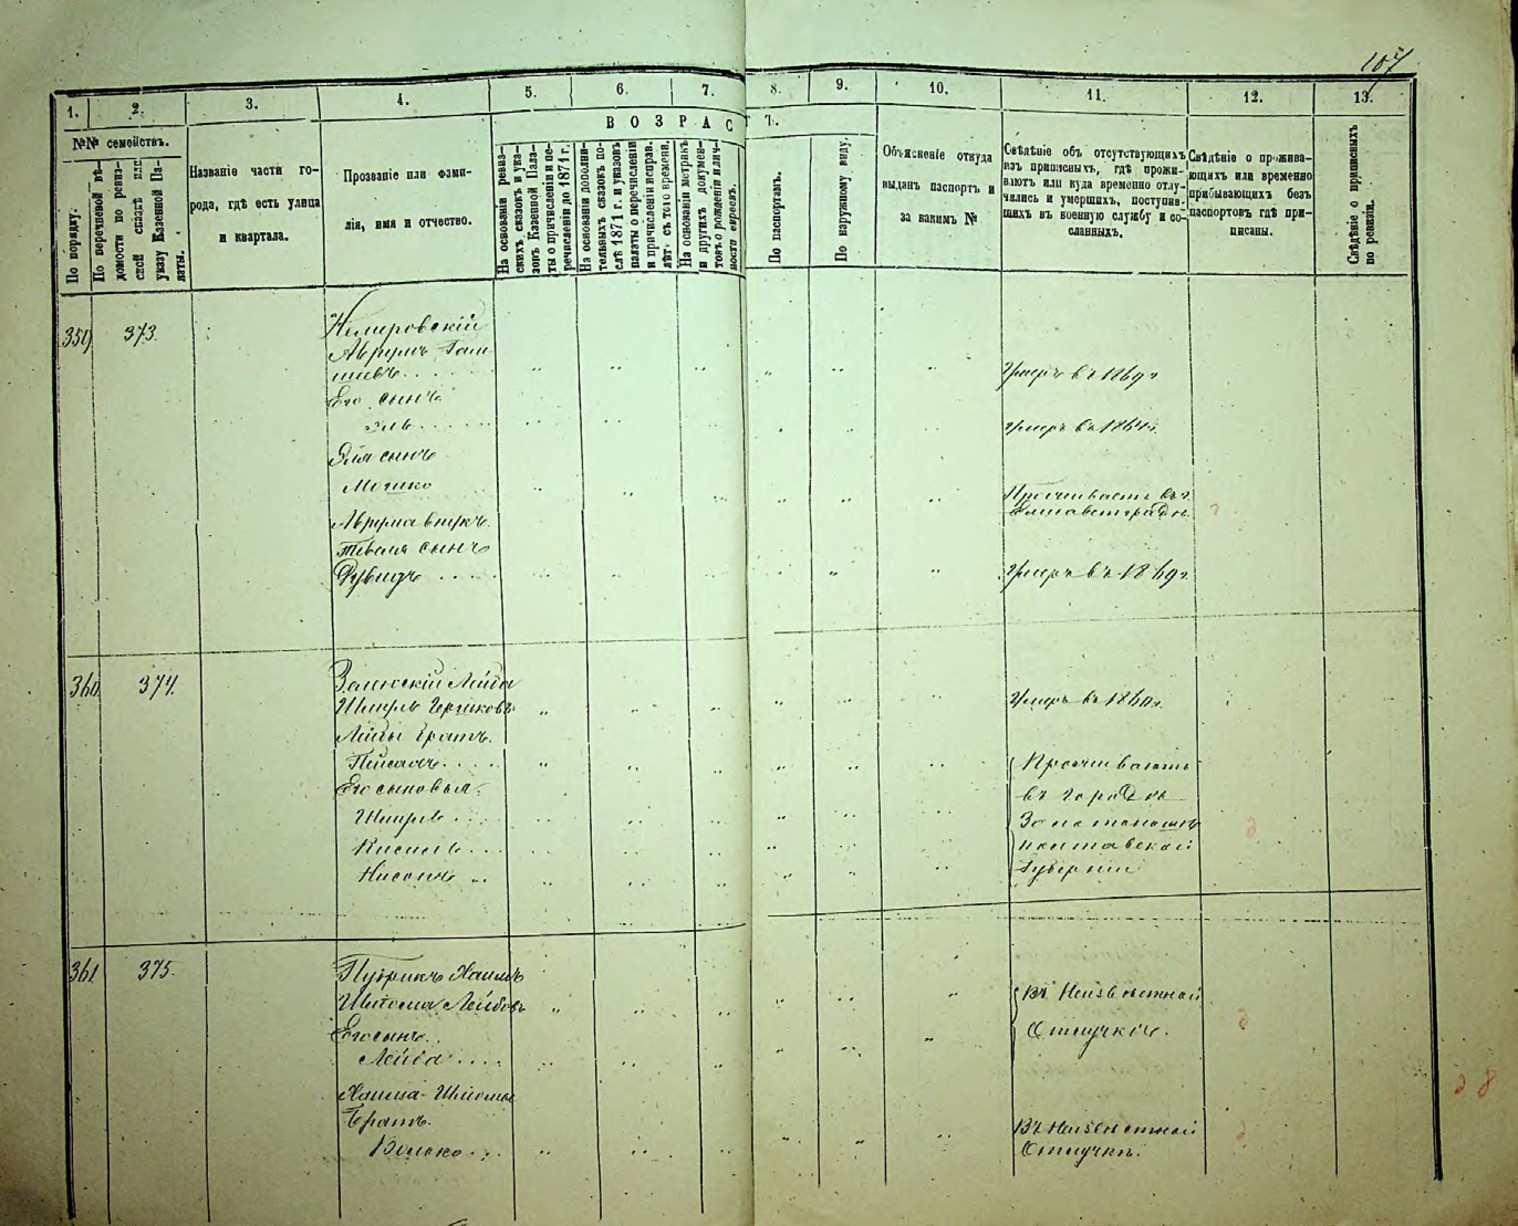 107
1. 2. 3. 4. 5. 6. 7. 8. 9. 10. 11. 12. 13.
№№ семействъ.
По порядку.
По перечневой вѣ-
домости по ревиз-
ской сказкѣ или
указу Казенной Па-
латы.
Названіе части го-
рода, гдѣ есть улица
и квартала.
Прозваніе или фами-
лія, имя и отчество.
ВОЗРАСТЪ.
На основаніи ревиз-
скихъ сказокъ и ука-
зовъ Казенной Пала-
ты о причисленіи и пе-
речисленіи до 1871 г.
На основаніи дополни-
тельныхъ сказокъ по-
слѣ 1871 г. и указовъ
палаты о перечисленіи
и причисленіи исправ.
лѣт. съ того времени.
На основаніи метрикъ
и другихъ докумен-
товъ о рожденіи и лич-
ности евреевъ.
По паспортамъ.
По наружному виду.
Объясненіе откуда
выданъ паспортъ и
за какимъ №
Свѣдѣніе объ отсутствующихъ
изъ приписныхъ, гдѣ прожи-
ваютъ или куда временно отлу-
чились и умершихъ, поступив-
шихъ въ военную службу и со-
сланныхъ.
Свѣдѣніе о прожива-
ющихъ или временно
прибывающихъ безъ
паспортовъ гдѣ при-
писаны.
Свѣдѣніе о приписныхъ
по ревизіи.
359 373.
Немировскій
Аврумъ
Умеръ въ 1869 г.
Его сынъ
Эль
Умеръ въ
Эля сынъ
Мошко
Проживаетъ въ г.
Елисаветградѣ
Аврума внукъ
сынъ
Дувидъ
Умеръ въ 1869 г.
360. 374.
Лейба
Шмуль Гершковъ
Умеръ въ 1860 г.
Лейбы братъ.
Пейсахъ
Проживаютъ
Его сыновья:
въ городѣ
Шмуль
Золотоношѣ
Кисиль
полтавской
Нисонъ
Губерніи
361. 375.
Хаимъ
Шлема Лейбовъ
Въ Неизвѣстной
Его сынъ
Отлучкѣ.
Лейба
Хаима-Шлемы
Братъ.
Волько
Въ Неизвѣстной
Отлучкѣ.